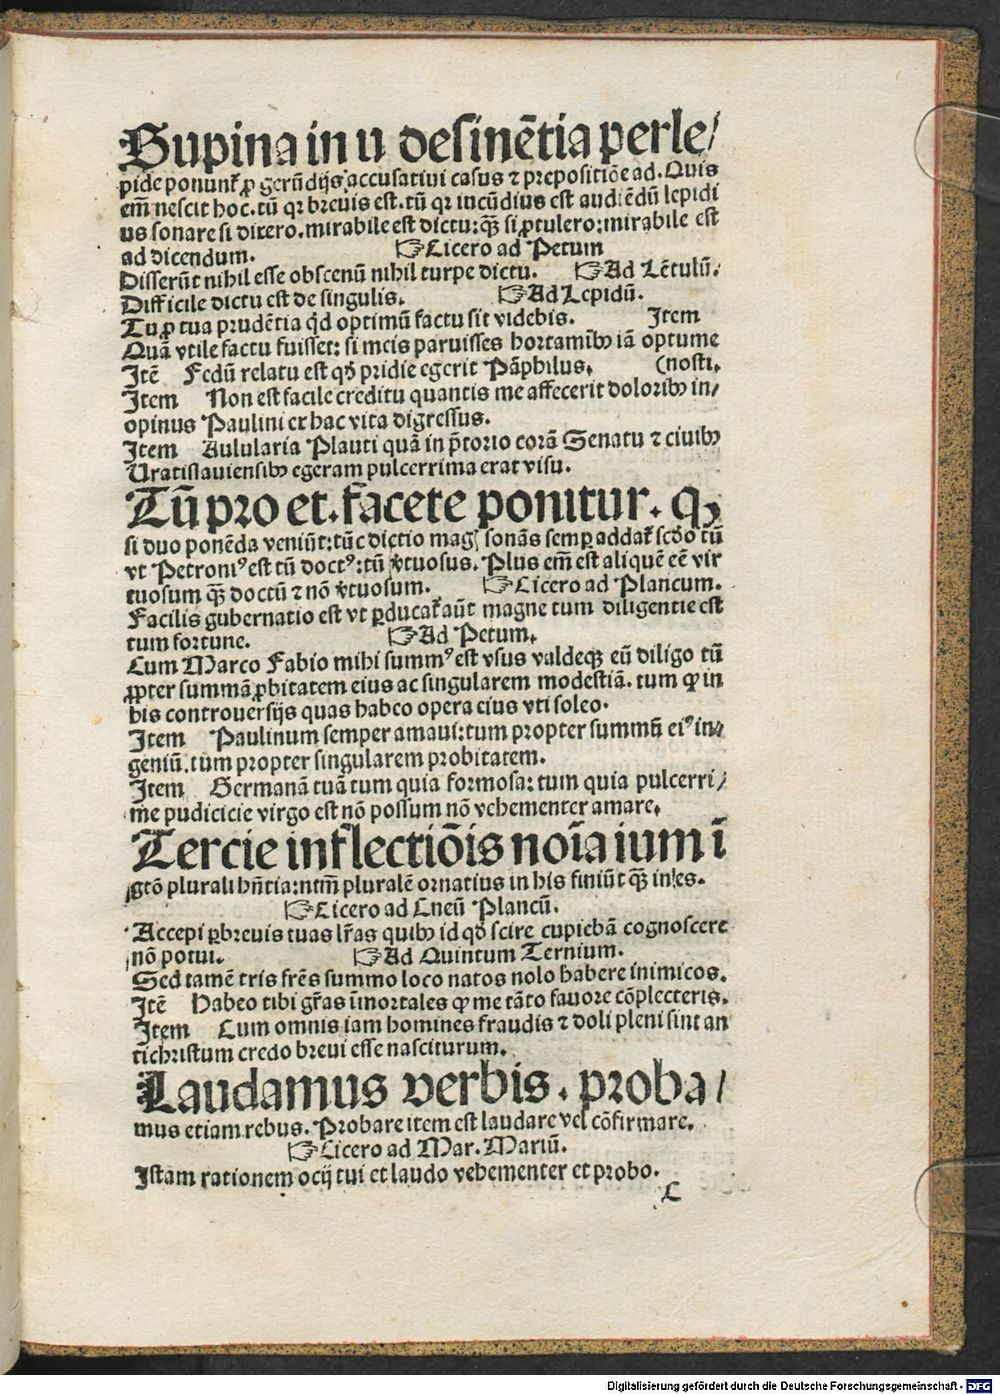 Supina in u desinētia perle/
pide ponunt̃ ꝓ gerūdijs accusatiui casus ⁊ prepositiōe ad. Quis
em̄ nescit hoc. tū qꝛ breuis est. tū qꝛ incūdius est audiēdū lepidi
us sonare si dicero. mirabile est dictu: qꝫ̄ si ꝓtulero: mirabile est
ad dicendum. ☞Cicero ad Petum
Disserūt nihil esse obscenū nihil turpe dictu. ☞Ad Lētulū.
Difficile dictu est de singulis. ☞Ad Lepidū.
Tu ꝓ tua prudētia qd̄ optimū factu sit videbis. Item
Quā vtile factu fuisset: si meis paruisses hortamībꝰ iā optume
Itē Fedū relatu est qd̄ pridie egerit Pāphilus. (nosti.
Item Non est facile creditu quantis me affecerit doloribꝰ in/
opinus Paulini ex hac vita digressus.
Item Aulularia Plauti quā in p̄torio corā Senatu ⁊ ciuibꝰ
Vratislauiensibꝰ egeram pulcerrima erat visu.
Tū pro et. facete ponitur. qꝫ
si duo ponēda veniūt: tūc dictio mag̃ sonās semꝑ addat̃ scd̄o tū
vt Petroniꝰ est tū doctꝰ: tū v̓tuosus. Plus em̄ est aliquē eē vir
tuosum qꝫ̄ doctū ⁊ nō v̓tuosum. ☞Cicero ad Plancum.
Facilis gubernatio est vt ꝑducat̃ aūt magne tum diligentie est
tum fortune. ☞Ad Petum.
Cum Marco Fabio mihi summꝰ est vsus valdeqꝫ eū diligo tū
ꝓpter summā ꝓbitatem eius ac singularem modestiā. tum qꝙ in
his controuersijs quas habeo opera eius vti soleo.
Item Paulinum semper amaui: tum propter summū eiꝰ in/
geniū. tum propter singularem probitatem.
Item Germanā tuā tum quia formosa: tum quia pulcerri/
me pudicicie virgo est nō possum nō vehementer amare.
Tercie inflectiōis noīa ium ī
gtō plurali hn̄tia: ntm̄ pluralē ornatius in his finiūt qꝫ̄ in es.
☞Cicero ad Cneū Plancū.
Accepi ꝑbreuis tuas lr̄as quibꝰ id qd̄ scire cupiebā cognoscere
nō potui. ☞Ad Quintum Ternium.
Sed tamē tris frēs summo loco natos nolo habere inimicos.
Itē Habeo tibi gr̄as īmortales qꝙ me tāto fauore cōplecteris.
Item Cum omnis iam homines fraudis ⁊ doli pleni sint an
tichristum credo breui esse nasciturum.
Laudamus verbis. proba/
mus etiam rebus. Probare item est laudare vel cōfirmare.
☞Cicero ad Mar. Mariū.
Istam rationem ocij tui et laudo vehementer et probo.
C
Digitalisierung gefördert durch die Deutsche Forschungsgemeinschaft - DFG